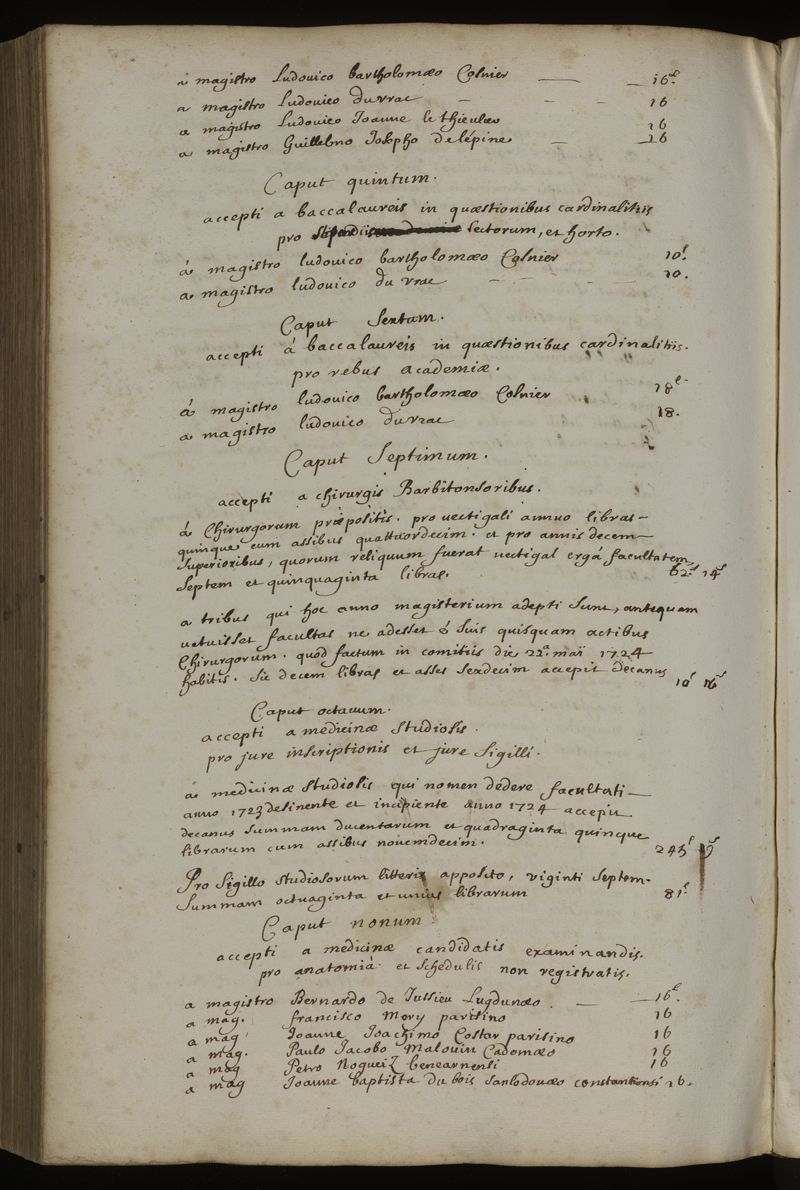 a magistro Ludovico bartholomæo Colnier — — 16ᵗ.
a magistro Ludovico duvrac — — — 16
a magistro Ludovico Joanne le thieulier 16
a magistro Guillelmo Josepho delépine — — 16
Caput quintum.
accepti a baccalaureis in quæstionibus cardinalitiis
pro lectorum, et horto.
á magistro ludovico bartholomæo Colnier 10ᵗ.
a magistro ludovico du vrac — — — 10.
Caput Sextum.
accepti á baccalaureis in quæstionibus cardinalitiis.
pro rebus academiæ.
á magistro ludovico bartholomæo Colnier 18ᵗ.
a magistro ludovico duvrac 18.
Caput Septimum.
accepti a chirurgis Barbitonsoribus.
á Chirurgorum præpositis. pro vectigali annuo libras
quinque cum assibus quattuordecim. et pro annis decem
superioribus, quorum reliquum fuerat vectigal ergá facultatem
septem et quinquaginta libras. 62ᵗ 14ˢ
a tribus qui hoc anno magisterium adepti sunt, antequam
vetuisset facultas ne adesset é suis quisquam actibus
Chirurgorum. quod factum in comitiis die 22ᵃ maii 1724
habitis. sic decem libras et asses sexdecim accepit decanus 10ᵗ 16ˢ
Caput octavum.
accepti a medicinæ studiosis.
pro jure inscriptionis et jure sigilli.
a medicinæ studiosis qui nomen dedere facultati
anno 1723 desinente et incipiente anno 1724 accepit
decanus summam ducentarum et quadraginta quinque
librarum cum assibus novemdecim. 245ᵗ 19ˢ
Pro sigillo studiosorum litteris apposito, viginti septem.
summam octuaginta et unius librarum 81ᵗ
Caput nonum
accepti a medicinæ candidatis examinandis.
pro anatomiâ et schedulis non registratis.
a magistro Bernardo de Jussieu Lugdunæo. — — 16ᵗ.
a mag. francisco Mery parisino 16
a mag Joanne Joachimo Costar parisino 16
a mag. Paulo Jacobo Malouin Cadomæo 16
a mag Petro Nogueiz benearnensi 16
a mag Joanne baptista du bois sanlodonæo constantiensi 16.